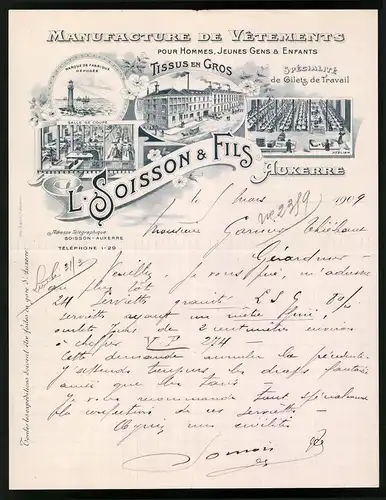 MANUFACTURE DE VÊTEMENTS
POUR HOMMES, JEUNES GENS & ENFANTS
TISSUS EN GROS
MARQUE DE FABRIQUE
DÉPOSÉE
SPÉCIALITÉ
de Gilets de Travail
SALLE DE COUPE
ATELIER
L. SOISSON & FILS
AUXERRE
Adresse Télégraphique
SOISSON-AUXERRE
TÉLÉPHONE 1-29
le 1 Mars 1909
No 2389
Monsieur Garnier Thiébaut
Gérardmer
Veuillez je vous prie, m'adresser
au plus tôt
24 Serviettes granité L S G 80/
serviette ayant un mètre fini,
ourlets jours de 2 centimètres environ
à chiffres V P 274
Cette demande annule la précédente
J'attends toujours les draps
ainsi que les taies
Je vous recommande tout spécialement
la confection de ces serviettes
Agréez mes civilités
Toutes les expéditions doivent être faites en gare d'Auxerre